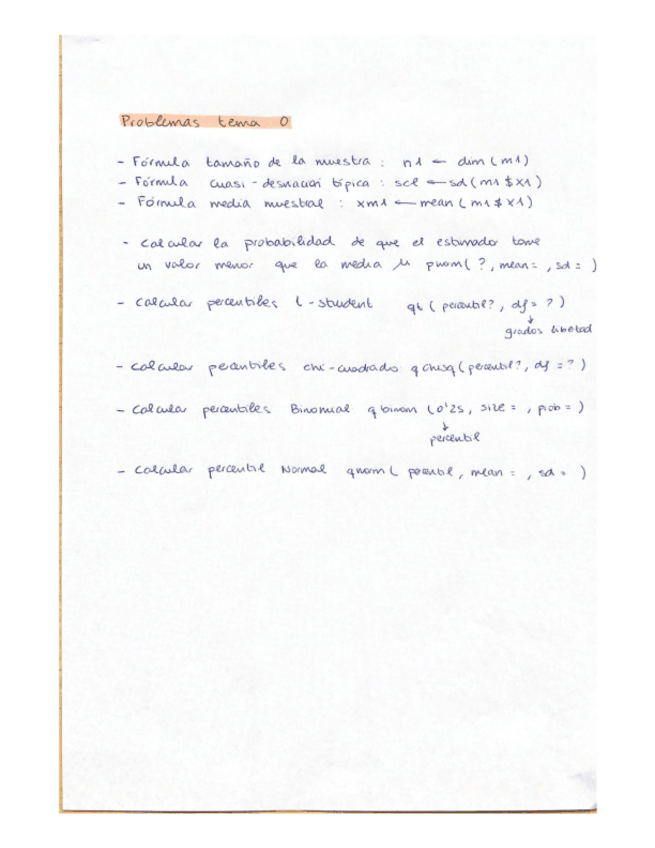 Problemas tema 0
- Fórmula tamaño de la muestra : n1 ← dim(m1)
- Fórmula cuasi-desviación típica : sc1 ← sd(m1$x1)
- Fórmula media muestral : xm1 ← mean(m1$x1)
- Calcular la probabilidad de que el estimador tome
un valor menor que la media μ pnorm( ?, mean= , sd= )
- Calcular percentiles t-student qt ( percentil?, df= ? )
↓
grados libertad
- Calcular percentiles chi-cuadrado qchisq(percentil?, df =? )
- Calcular percentiles Binomial qbinom (0'25, size= , prob= )
↓
percentil
- Calcular percentil Normal qnorm( percentil, mean= , sd= )